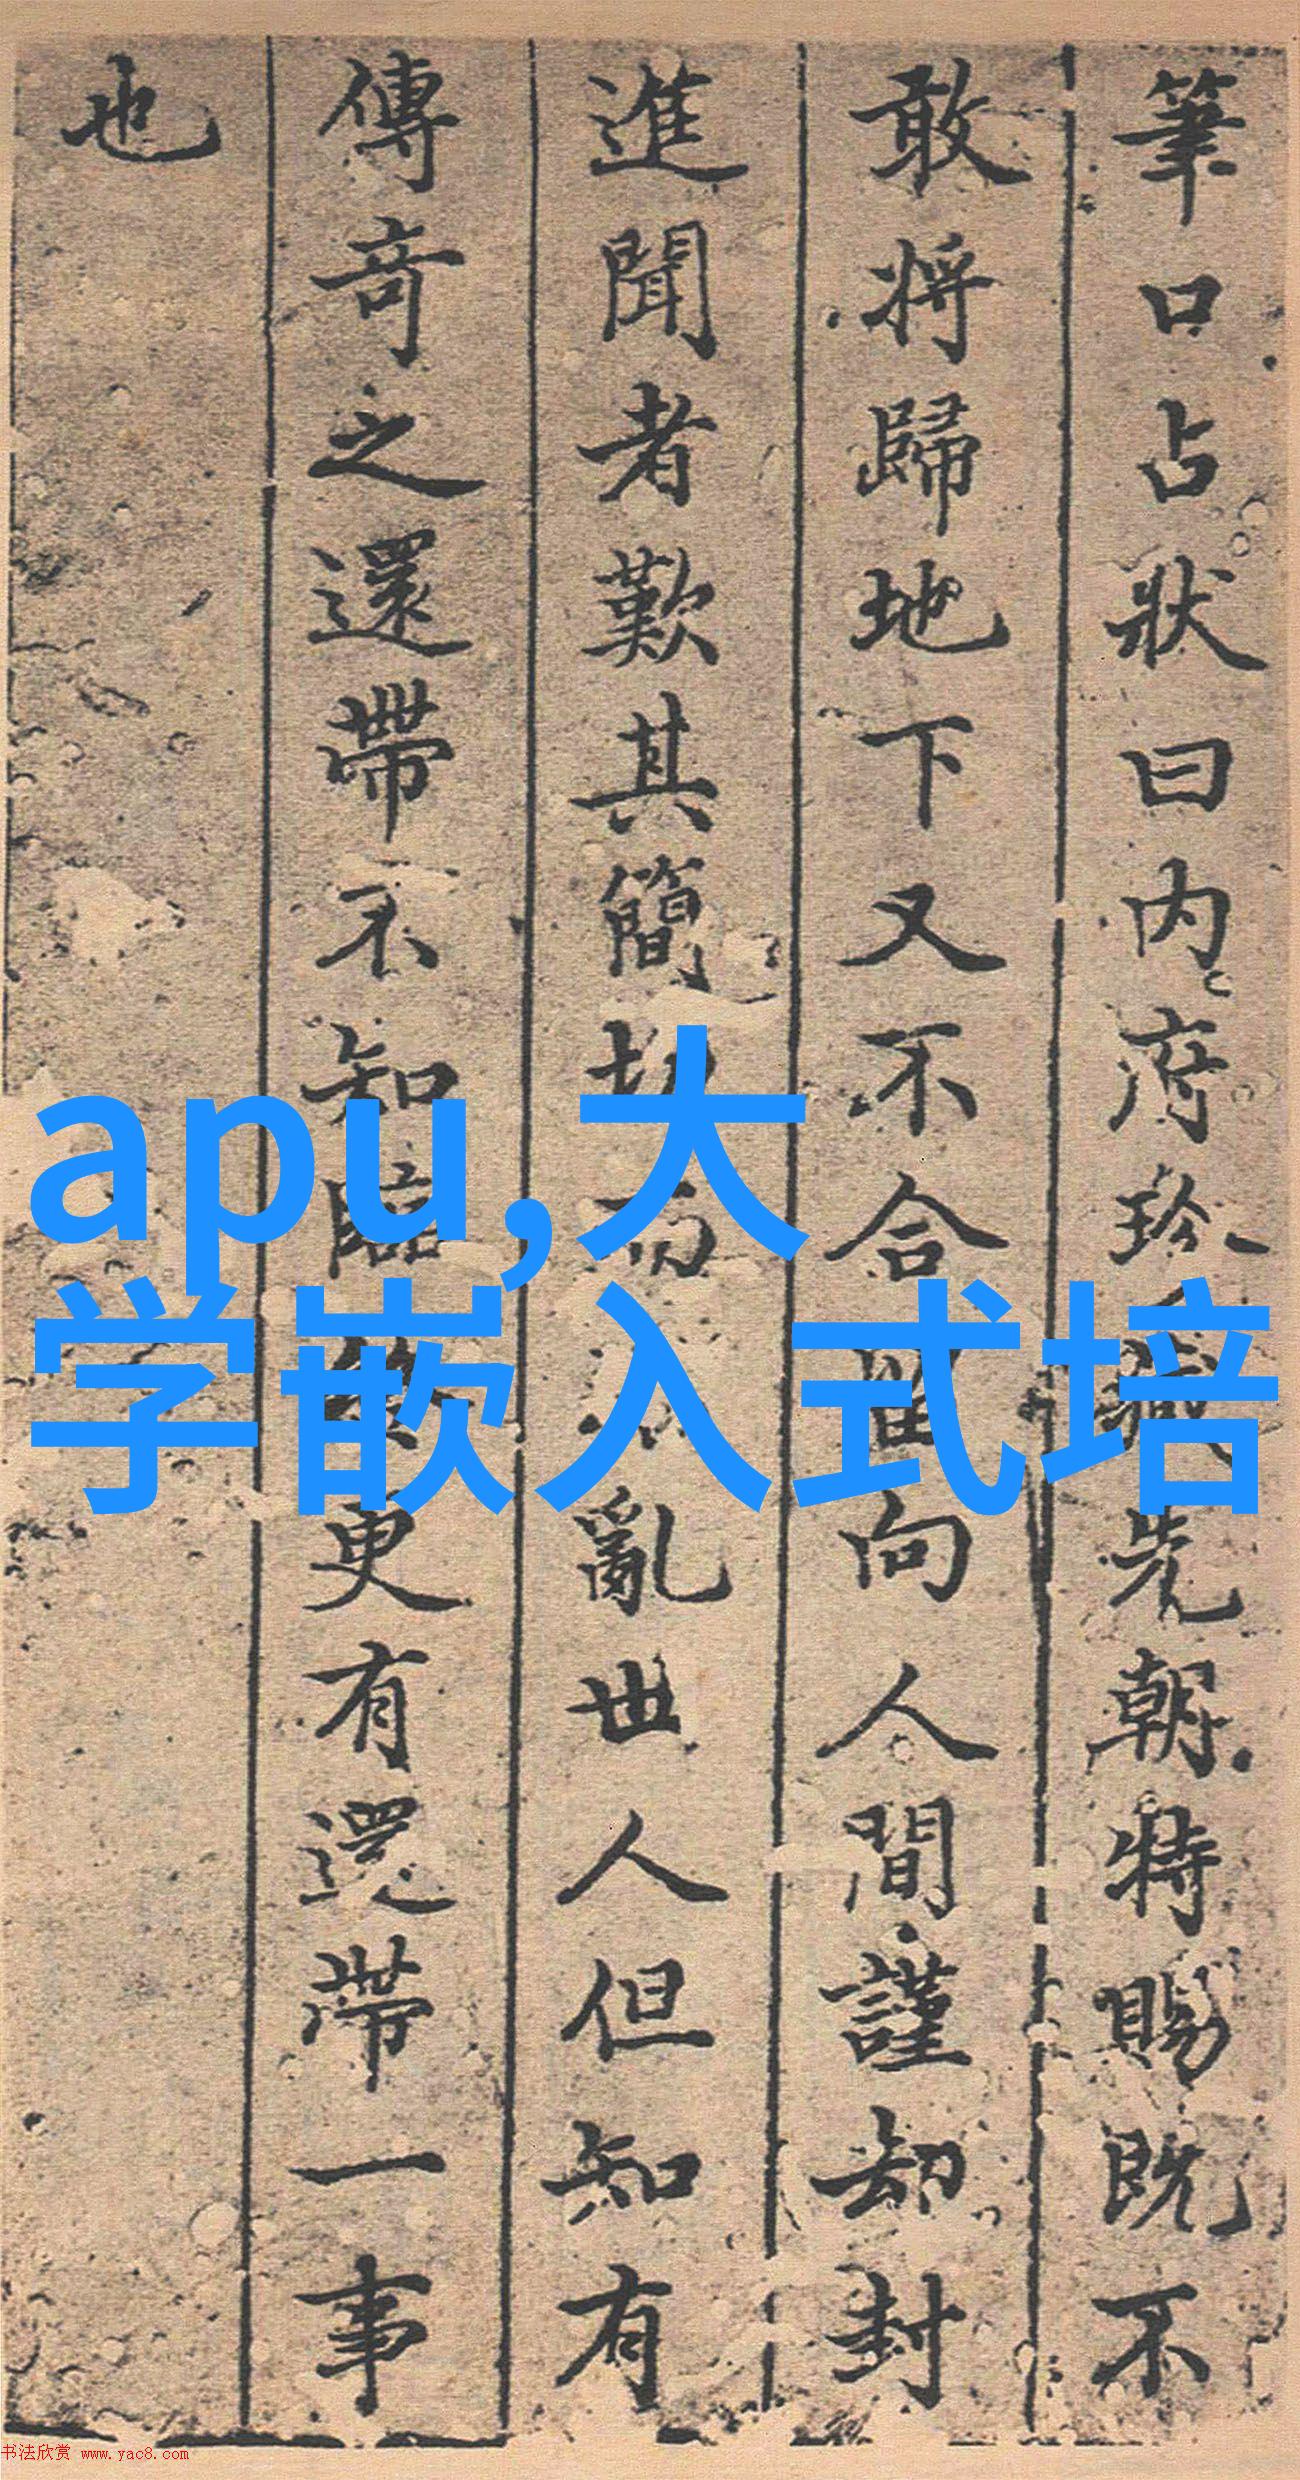 筆口占狀曰内府珍藏先朝特賜既不
敢將歸地下又不合留向人間謹却封
進聞者歎其簡切而不亂世人但知有
傳奇之還帶不知臨終更有還帶一事
也
apu,大
学嵌入式培
书法欣赏 www.yac8.com